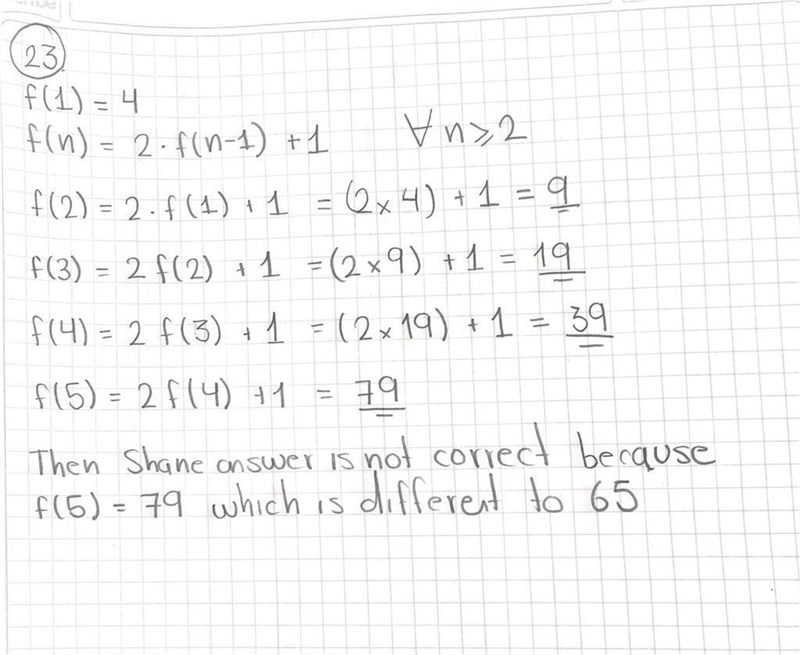 23
f(1) = 4
f(n) = 2 · f(n-1) + 1 ∀ n ⩾ 2
f(2) = 2 · f(1) + 1 = (2 × 4) + 1 = 9
f(3) = 2 f(2) + 1 = (2 × 9) + 1 = 19
f(4) = 2 f(3) + 1 = (2 × 19) + 1 = 39
f(5) = 2 f(4) + 1 = 79
Then Shane answer is not correct because
f(5) = 79 which is different to 65